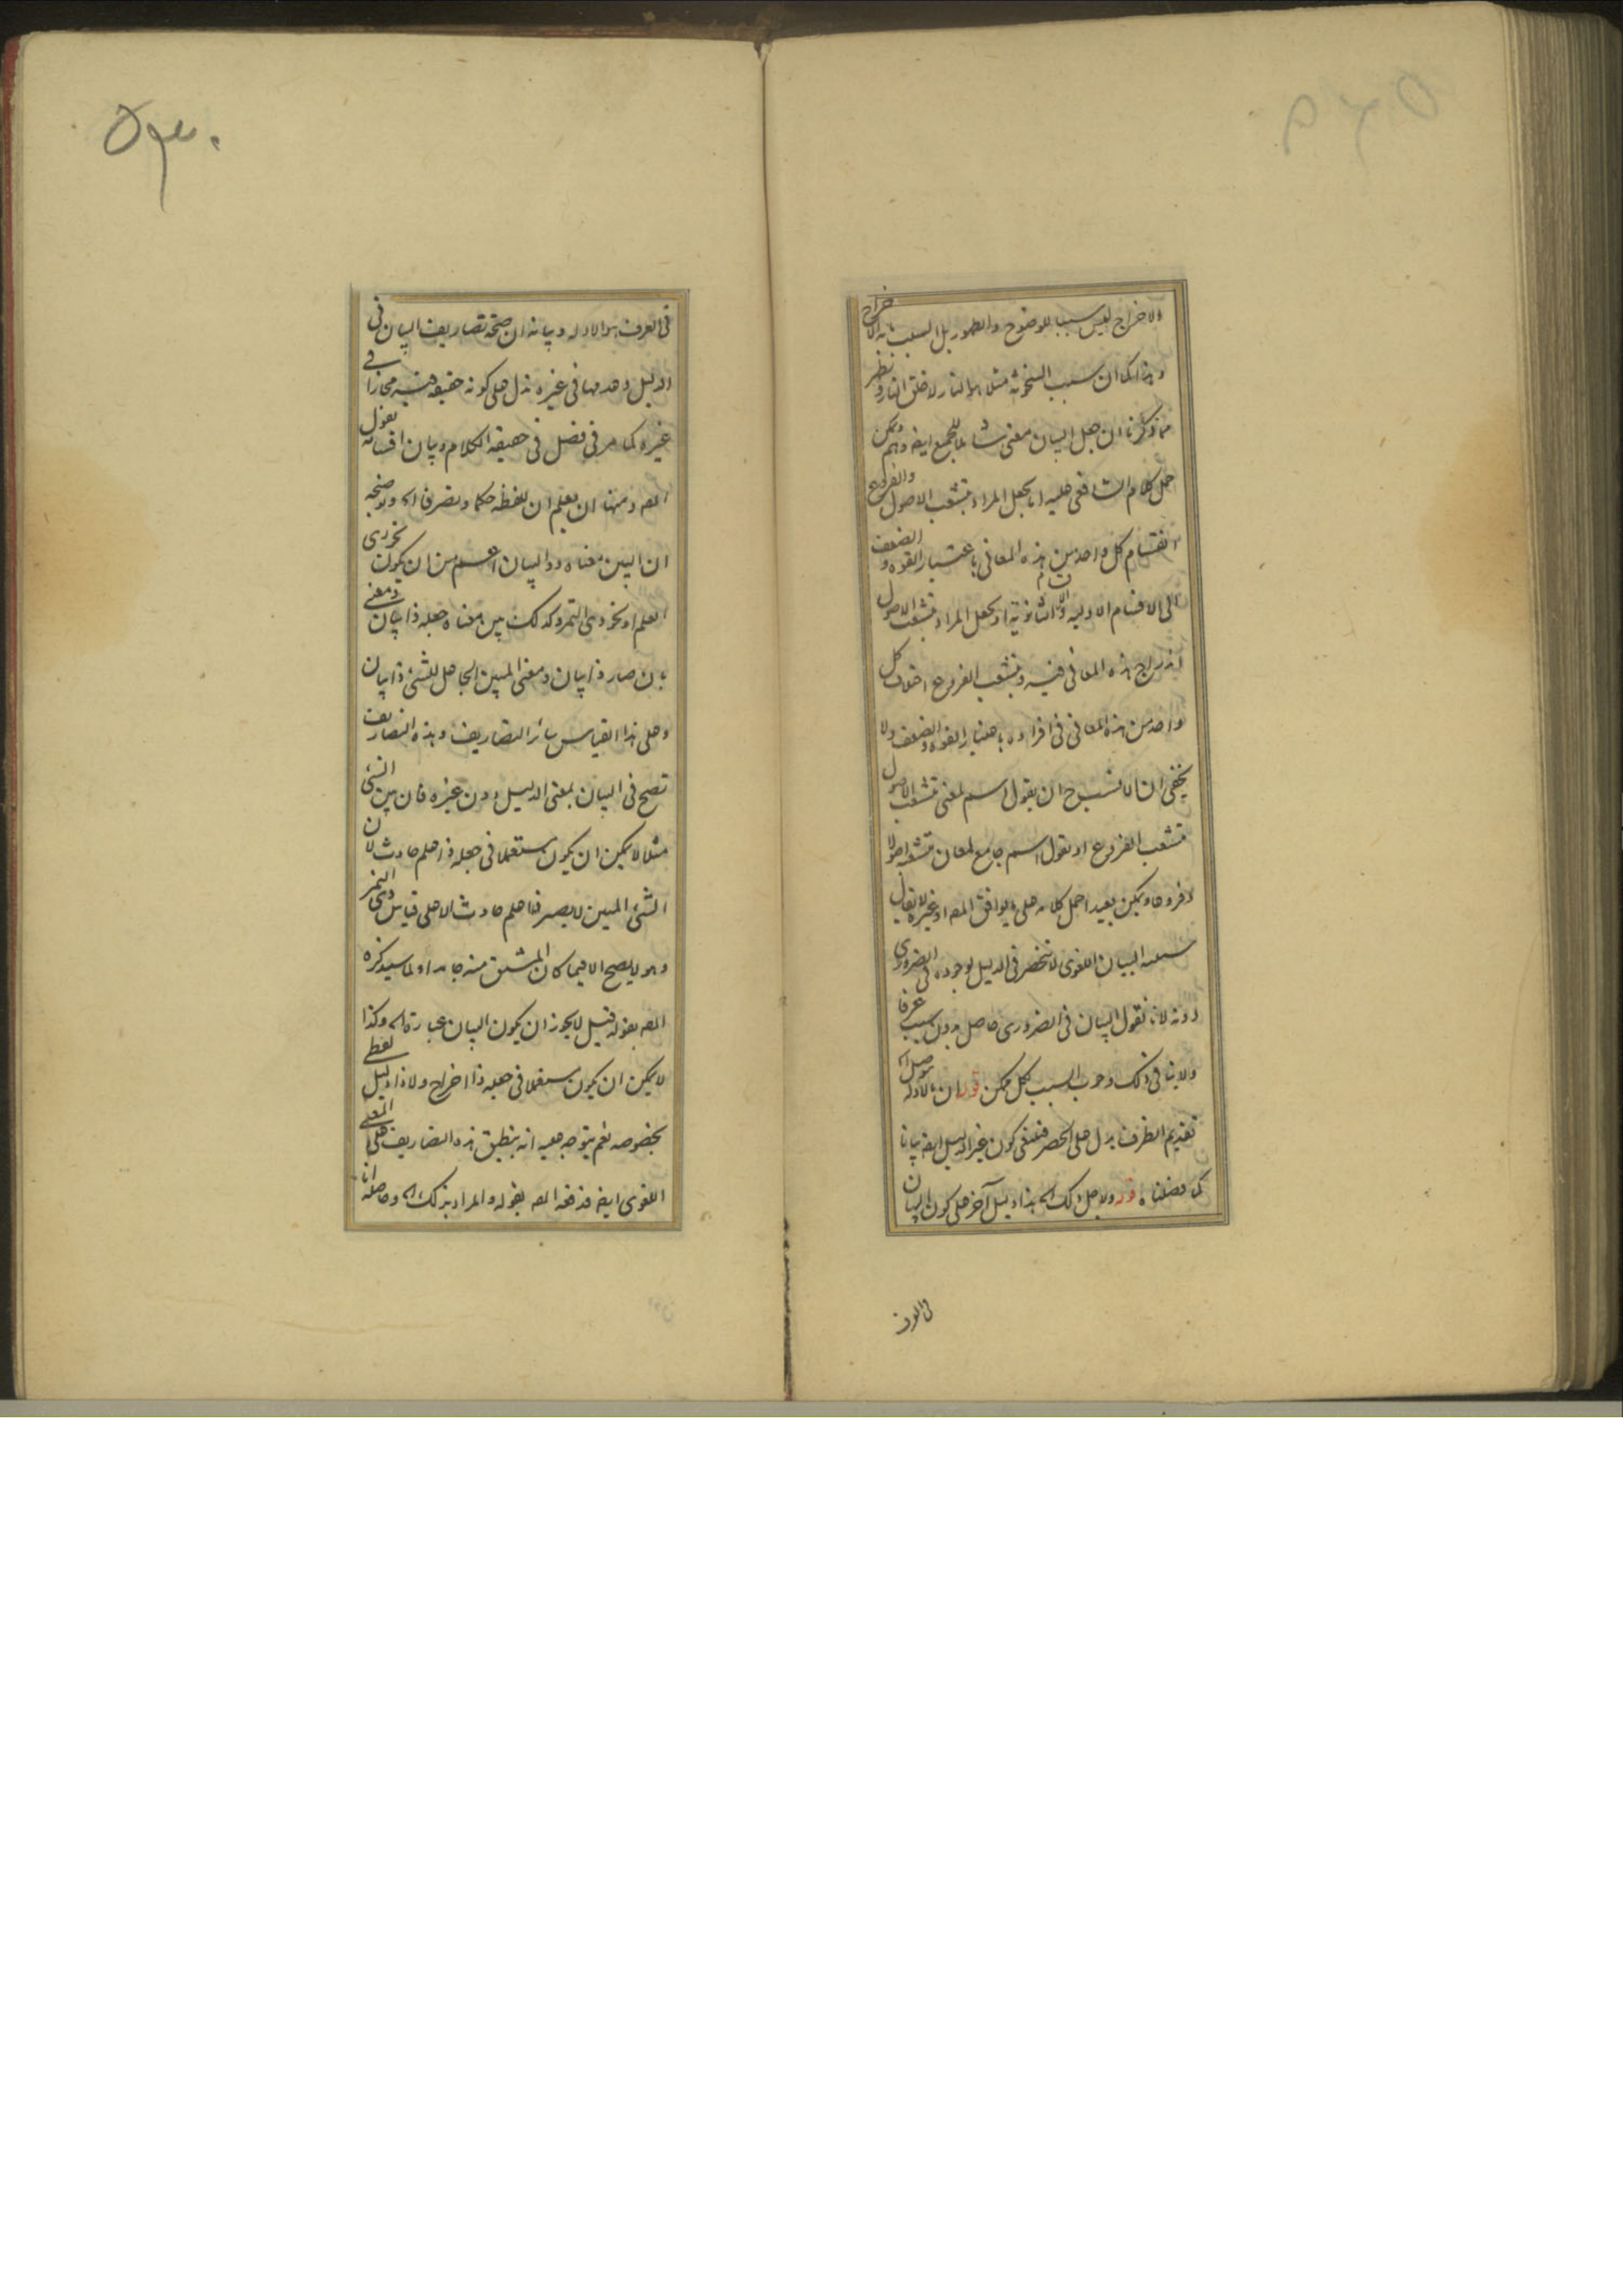 والاخراج ليس سببا للوضوح والظهور بل السبب ما به الاخراج
وهذا كما ان سبب السخونة مثلا هو النار لا خلق النار وظهر
مما ذكرنا ان جعل البيان معنى شاملا للجميع ايضا وهم ويمكن
حمل كلام الشافعي عليه اما بجعل المراد بتشعب الاصول والفروع
انقسام كل واحد من هذه المعاني باعتبار القوة والضعف
الى الاقسام الاولية والثانوية او بجعل المراد بتشعب الاصول
اندراج هذه المعاني فيه وبتشعب الفروع اختلاف كل
واحد من هذه المعاني في افراده باعتبار القوة والضعف ولا
يخفى ان الانسب ح ان يقول اسم لمعنى متشعب الاصول
متشعب الفروع او يقول اسم جامع لمعان متشعبة اصولا
وفروعا ويمكن بعيدا حمل كلامه على ما يوافق المصـ او غيره لا يقال
البيان اللغوي لا تنحصر في الدليل لوجوده في الضروري
دونه لانا نقول البيان في الضروري حاصل بدون سبب عرفا
ولا ينافي ذلك وجوب السبب لكل ممكن قوله ان بالادلة
تقديم الظرف يدل على الحصر فينتفي كون غير الدليل ايضا بيانا
كما فصلناه قوله ولاجل ذلك الخ هذا دليل آخر على كون البيان
في العرف
۵۳۰
في العرف هو الادلة وبيانه ان صحة تصاريف البيان في
الدليل وعدمها في غيره تدل على كونه حقيقة فيه مجازا في
غيره كما مر في فصل في حقيقة الكلام وبيان اقسامه بقول
المصـ ومنها ان يعلم ان للفظه حكما وتصرفا الخ وتوضيحه
ان البين معناه ذو البيان اعم من ان يكون نحو ذي
العلم او نحو ذي التمر وكذلك بين معناه جعله ذا بيان ومعنى
بان صار ذا بيان ومعنى المبين الجاعل للشئ ذا بيان
وعلى هذا القياس سائر التصاريف وهذه التصاريف
تصح في البيان بمعنى الدليل دون غيره فان بين الشئ
مثلا لا يمكن ان يكون مستعملا في جعله ذا علم حادث لان
الشئ المبين لا يصير ذا علم حادث الا على قياس ذي التمر
وهو لا يصح الا فيما كان المشتق منه جامدا ولما سيذكره
المصـ بقوله فيل لا يجوز ان يكون البيان عبارة الخ وكذا
لا يمكن ان يكون مستعملا في جعله ذا اخراج ولا ذا دليل لفظي
بخصوصه نعم يتوجه عليه انه ينطبق هذه التصاريف على المعنى
اللغوي ايضا فدفعه المصـ بقوله والمراد بذلك الخ وحاصله انا